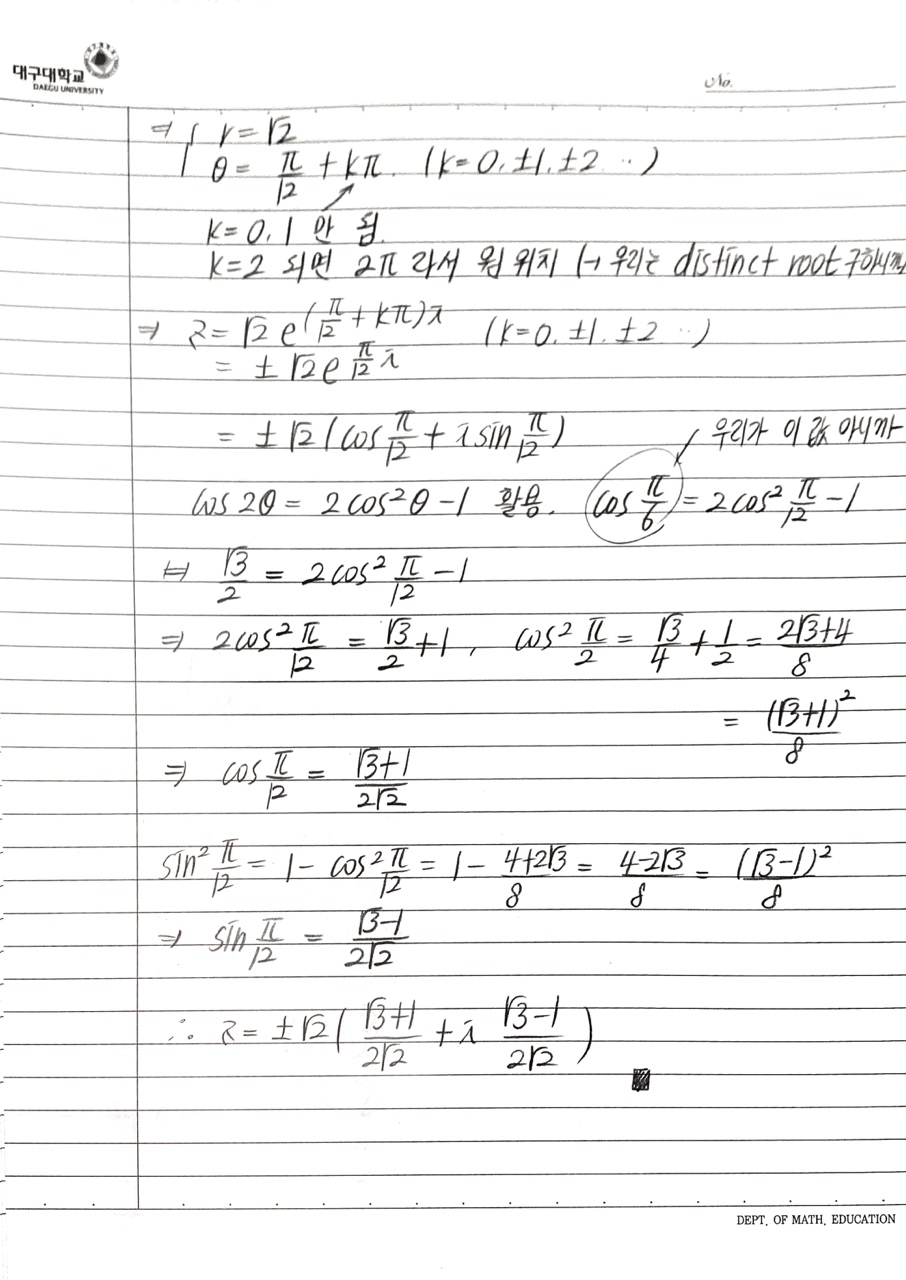 대구대학교
DAEGU UNIVERSITY
No.
⇒ { r = √2
θ = π/12 + kπ. (k=0, ±1, ±2 ‥)
k=0, 1 만 됨.
k=2 되면 2π 라서 원위치 (→ 우리는 distinct root 구하니까
⇒ z = √2 e^(π/12 + kπ)i (k=0, ±1, ±2 ‥)
= ±√2 e^(π/12 i)
= ±√2 (cos π/12 + i sin π/12)
우리가 이 값 아니까
cos 2θ = 2cos²θ − 1 활용. cos π/6 = 2cos² π/12 − 1
⇔ √3/2 = 2cos² π/12 − 1
⇒ 2cos² π/12 = √3/2 + 1, cos² π/2 = √3/4 + 1/2 = (2√3+4)/8
= (√3+1)²/8
⇒ cos π/12 = (√3+1)/(2√2)
sin² π/12 = 1 − cos² π/12 = 1 − (4+2√3)/8 = (4−2√3)/8 = (√3−1)²/8
⇒ sin π/12 = (√3−1)/(2√2)
∴ z = ±√2 ( (√3+1)/(2√2) + i (√3−1)/(2√2) )
DEPT. OF MATH. EDUCATION